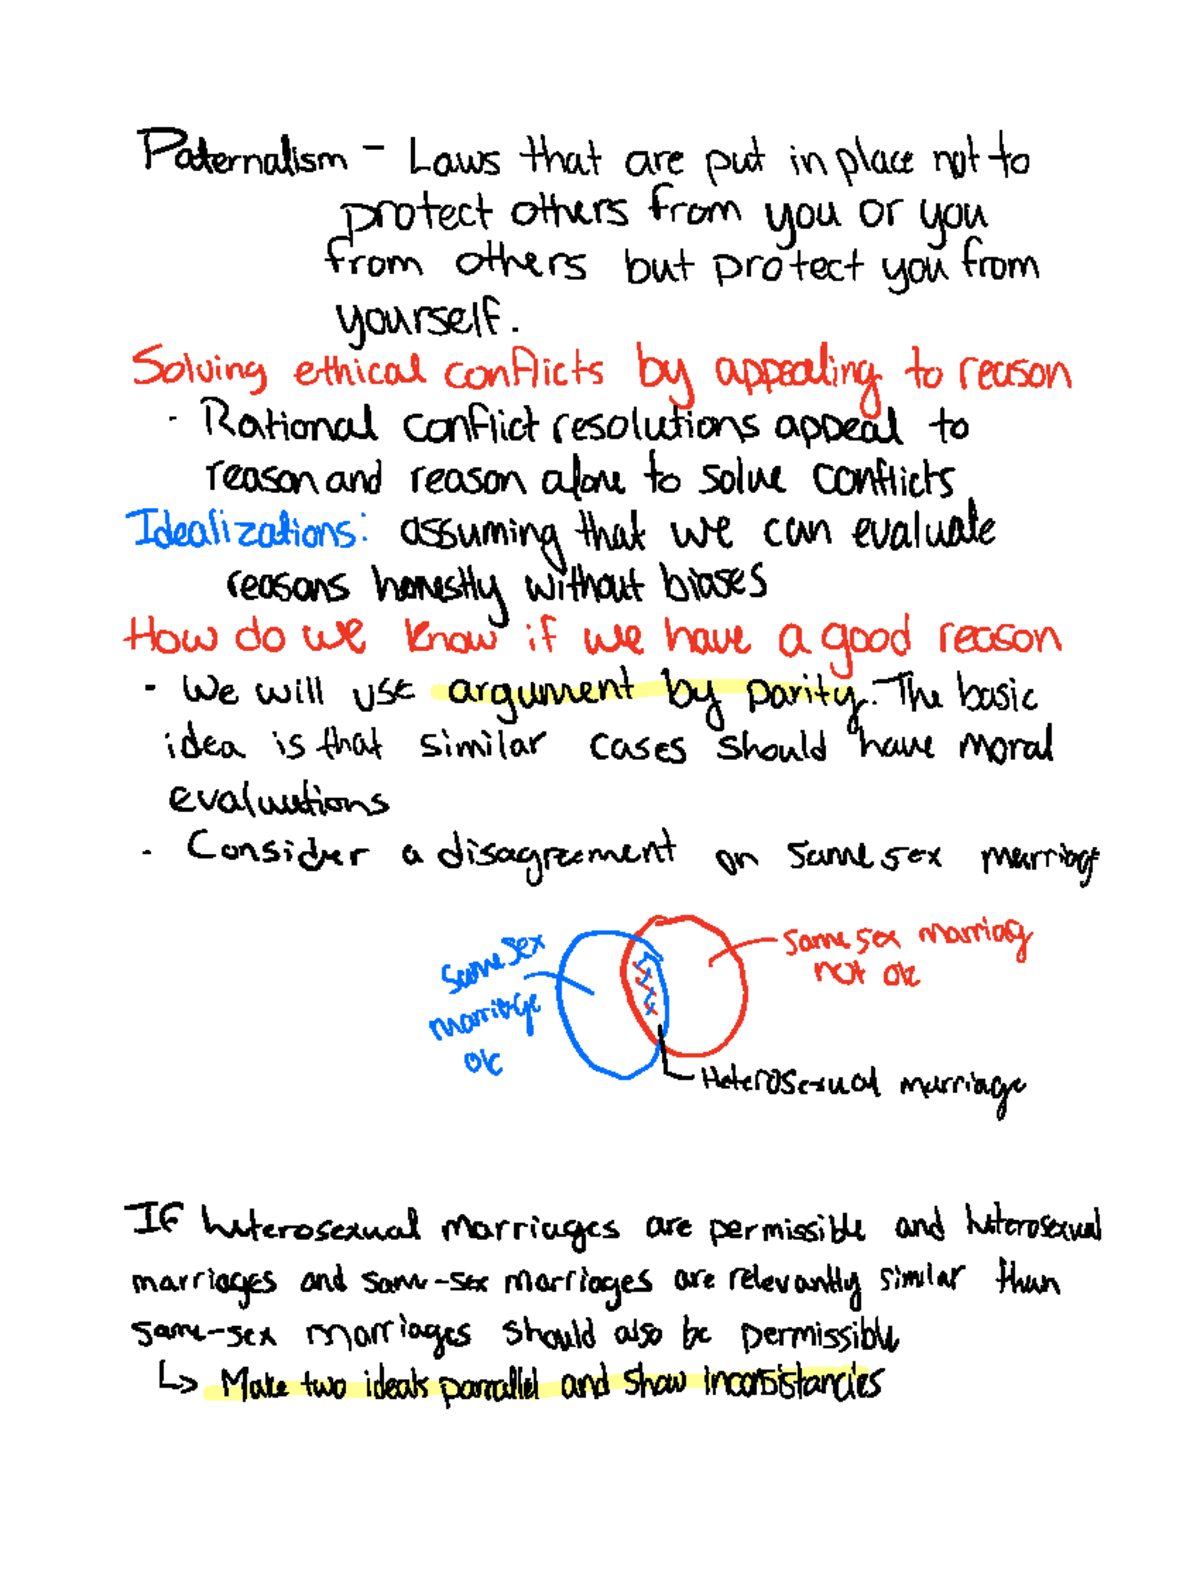 Paternalism - Laws that are put in place not to
protect others from you or you
from others but protect you from
yourself.
Solving ethical conflicts by appealing to reason
· Rational conflict resolutions appeal to
reason and reason alone to solve conflicts
Idealizations: assuming that we can evaluate
reasons honestly without biases
How do we know if we have a good reason
- We will use argument by parity. The basic
idea is that similar cases should have moral
evaluations
- Consider a disagreement on same sex marriage
same sex
marriage
ok
same sex marriage
not ok
Heterosexual marriage
If heterosexual marriages are permissible and heterosexual
marriages and same-sex marriages are relevantly similar then
same-sex marriages should also be permissible
↳ Make two ideals parrallel and show inconsistancies